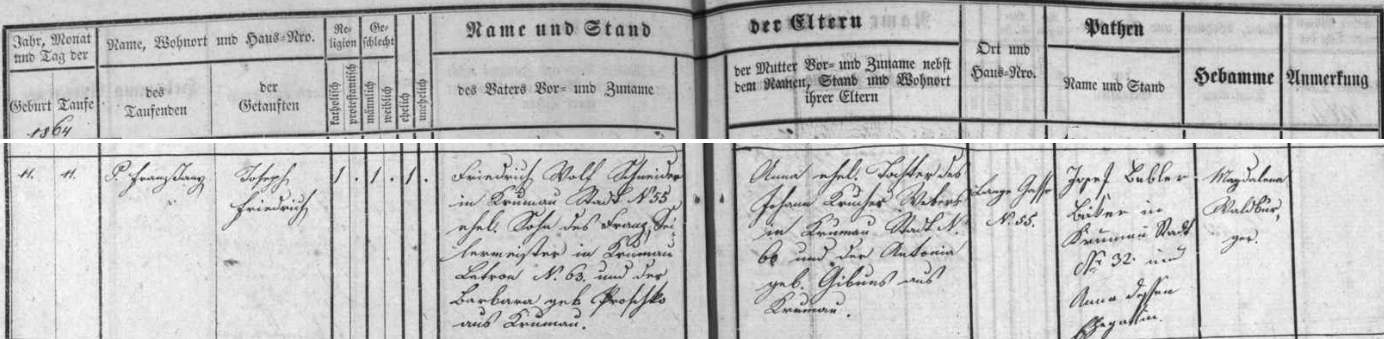 Name und Stand
der Eltern
Jahr, Monat
und Tag der
Name, Wohnort und Haus-Nro.
Re-
ligion
Ge-
schlecht
Pathen
Ort und
Haus-Nro.
Geburt
Taufe
des
Taufenden
der
Getauften
katholisch
protestantisch
männlich
weiblich
ehelich
unehelich
des Vaters Vor- und Zuname
der Mutter Vor- und Zuname nebst
dem Namen, Stand und Wohnort
ihrer Eltern
Name und Stand
Hebamme
Anmerkung
1864
11.
11.
P. Franz
Joseph
Friedrich
1
.
1
.
1
.
Friedrich Wolf Schneider
in Krumau Stadt N 55
ehel. Sohn des Franz, Sei-
lermeister in Krumau
Latron N. 63. und der
Barbara geb. Proschko
aus Krumau.
Anna ehel. Tochter des
Johann Webers
in Krumau Stadt N.
und der Antonia
geb. aus
Krumau.
Lange Gasse
N. 55.
Josef
Bäker in
Krumau Stadt
No 32. und
Anna dessen
Ehegattin.
Magdalena
Waldbur,
ger.